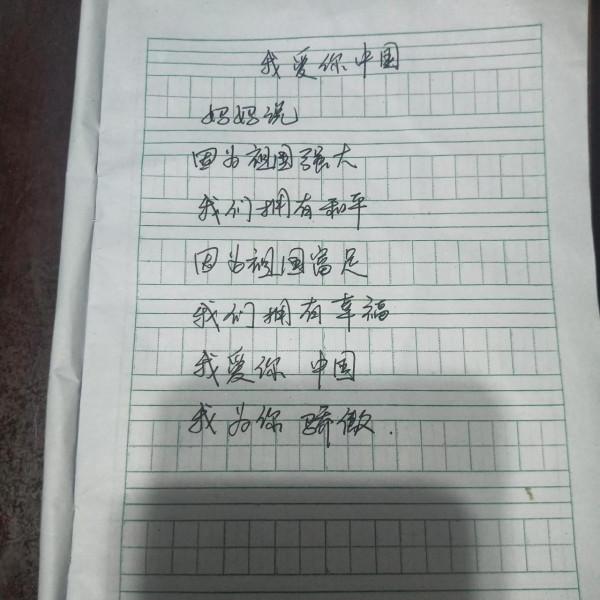 我爱你中国
妈妈说
因为祖国强大
我们拥有和平
因为祖国富足
我们拥有幸福
我爱你 中国
我为你 骄傲.